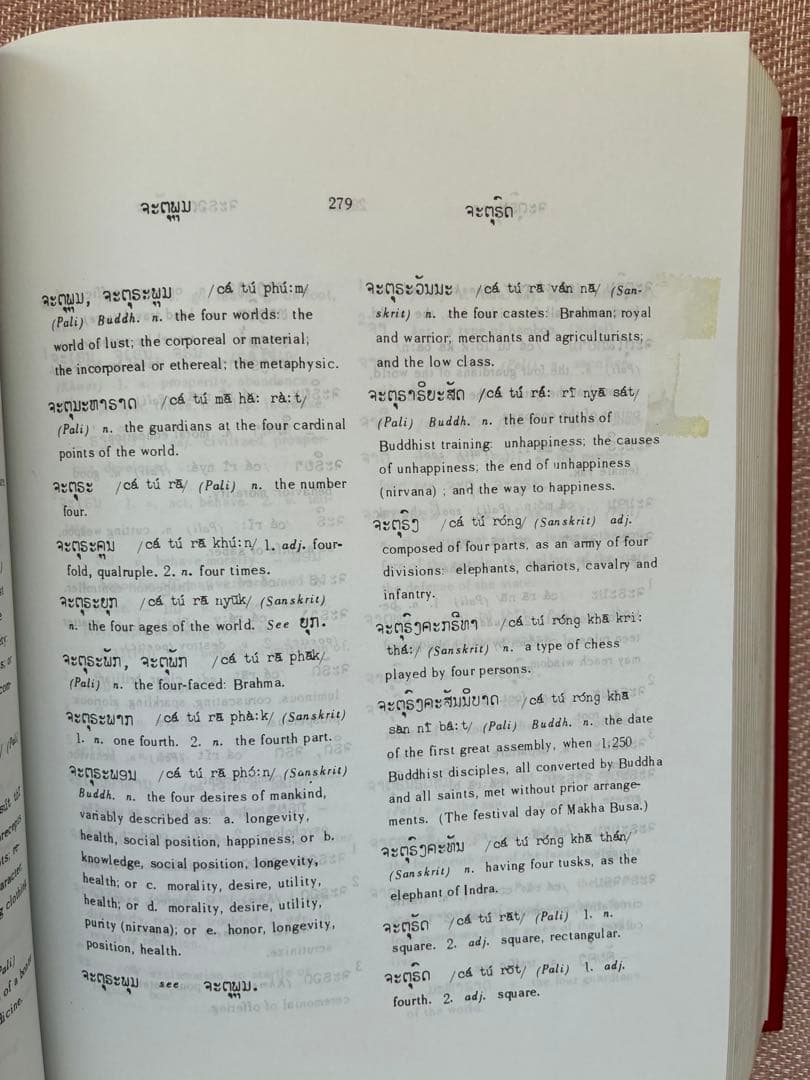 ຈະຕຸພູມ
279
ຈະຕຸຣົດ
ຈະຕຸພູມ, ຈະຕຸຣະພູມ /cá tú phú:m/
(Pali) Buddh. n. the four worlds: the
world of lust; the corporeal or material;
the incorporeal or ethereal; the metaphysic.
ຈະຕຸມະຫາຣາດ /cá tú mā hǎ: rà:t/
(Pali) n. the guardians at the four cardinal
points of the world.
ຈະຕຸຣະ /cá tú rā/ (Pali) n. the number
four.
ຈະຕຸຣະຄູນ /cá tú rā khú:n/ 1. adj. four-
fold, qualruple. 2. n. four times.
ຈະຕຸຣະຍຸກ /cá tú rā nyūk/ (Sanskrit)
n. the four ages of the world. See ຍຸກ.
ຈະຕຸຣະພັກ, ຈະຕຸພັກ /cá tú rā phāk/
(Pali) n. the four-faced: Brahma.
ຈະຕຸຣະພາກ /cá tú rā phà:k/ (Sanskrit)
1. n. one fourth. 2. n. the fourth part.
ຈະຕຸຣະພອນ /cá tú rā phó:n/ (Sanskrit)
Buddh. n. the four desires of mankind,
variably described as: a. longevity,
health, social position, happiness; or b.
knowledge, social position, longevity,
health; or c. morality, desire, utility,
health; or d. morality, desire, utility,
purity (nirvana); or e. honor, longevity,
position, health.
ຈະຕຸຣະພຸມ see ຈະຕຸພູມ.
ຈະຕຸຣະວັນນະ /cá tú rā ván nā/ (San-
skrit) n. the four castes: Brahman; royal
and warrior; merchants and agriculturists;
and the low class.
ຈະຕຸຣາຣິຍະສັດ /cá tú rá: rī nyā sát/
(Pali) Buddh. n. the four truths of
Buddhist training: unhappiness; the causes
of unhappiness; the end of unhappiness
(nirvana) ; and the way to happiness.
ຈະຕຸຣົງ /cá tú róng/ (Sanskrit) adj.
composed of four parts, as an army of four
divisions: elephants, chariots, cavalry and
infantry.
ຈະຕຸຣົງຄະກຣີທາ /cá tú róng khā kri:
thá:/ (Sanskrit) n. a type of chess
played by four persons.
ຈະຕຸຣົງຄະສັນນິບາດ /cá tú róng khā
sàn nī bá:t/ (Pali) Buddh. n. the date
of the first great assembly, when 1,250
Buddhist disciples, all converted by Buddha
and all saints, met without prior arrange-
ments. (The festival day of Makha Busa.)
ຈະຕຸຣົງຄະທັນ /cá tú róng khā thán/
(Sanskrit) n. having four tusks, as the
elephant of Indra.
ຈະຕຸຣັດ /cá tú rāt/ (Pali) 1. n.
square. 2. adj. square, rectangular.
ຈະຕຸຣົດ /cá tú rōt/ (Pali) 1. adj.
fourth. 2. adj. square.